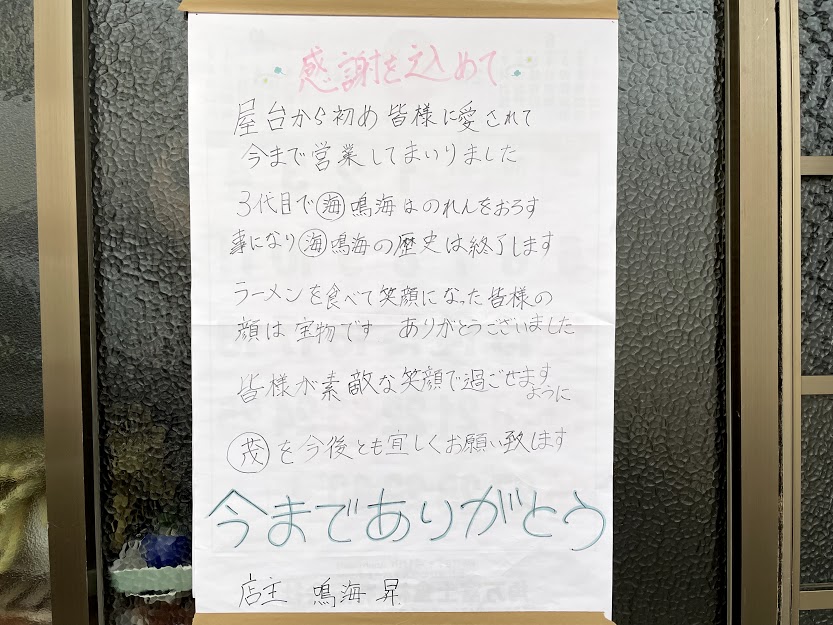 感謝を込めて
屋台から初め皆様に愛されて
今まで営業してまいりました
3代目で㊙鳴海はのれんをおろす
事になり海鳴海の歴史は終了します
ラーメンを食べて笑顔になった皆様の
顔は宝物です ありがとうございました
皆様が素敵な笑顔で過ごせますように
茂を今後とも宜しくお願い致します
今までありがとう
店主 鳴海 昇